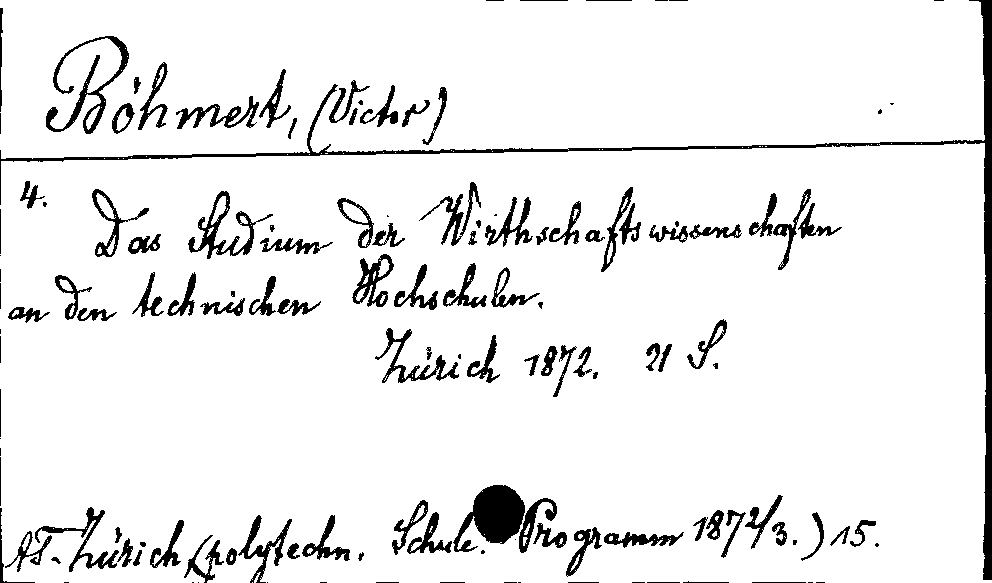 Böhmert, (Victor)
4.
Das Studium der Wirthschaftswissenschaften
an den technischen Hochschulen.
Zürich 1872. 21 S.
AT-Zürich (polytechn. Schule. Programm 1872/3.) 15.